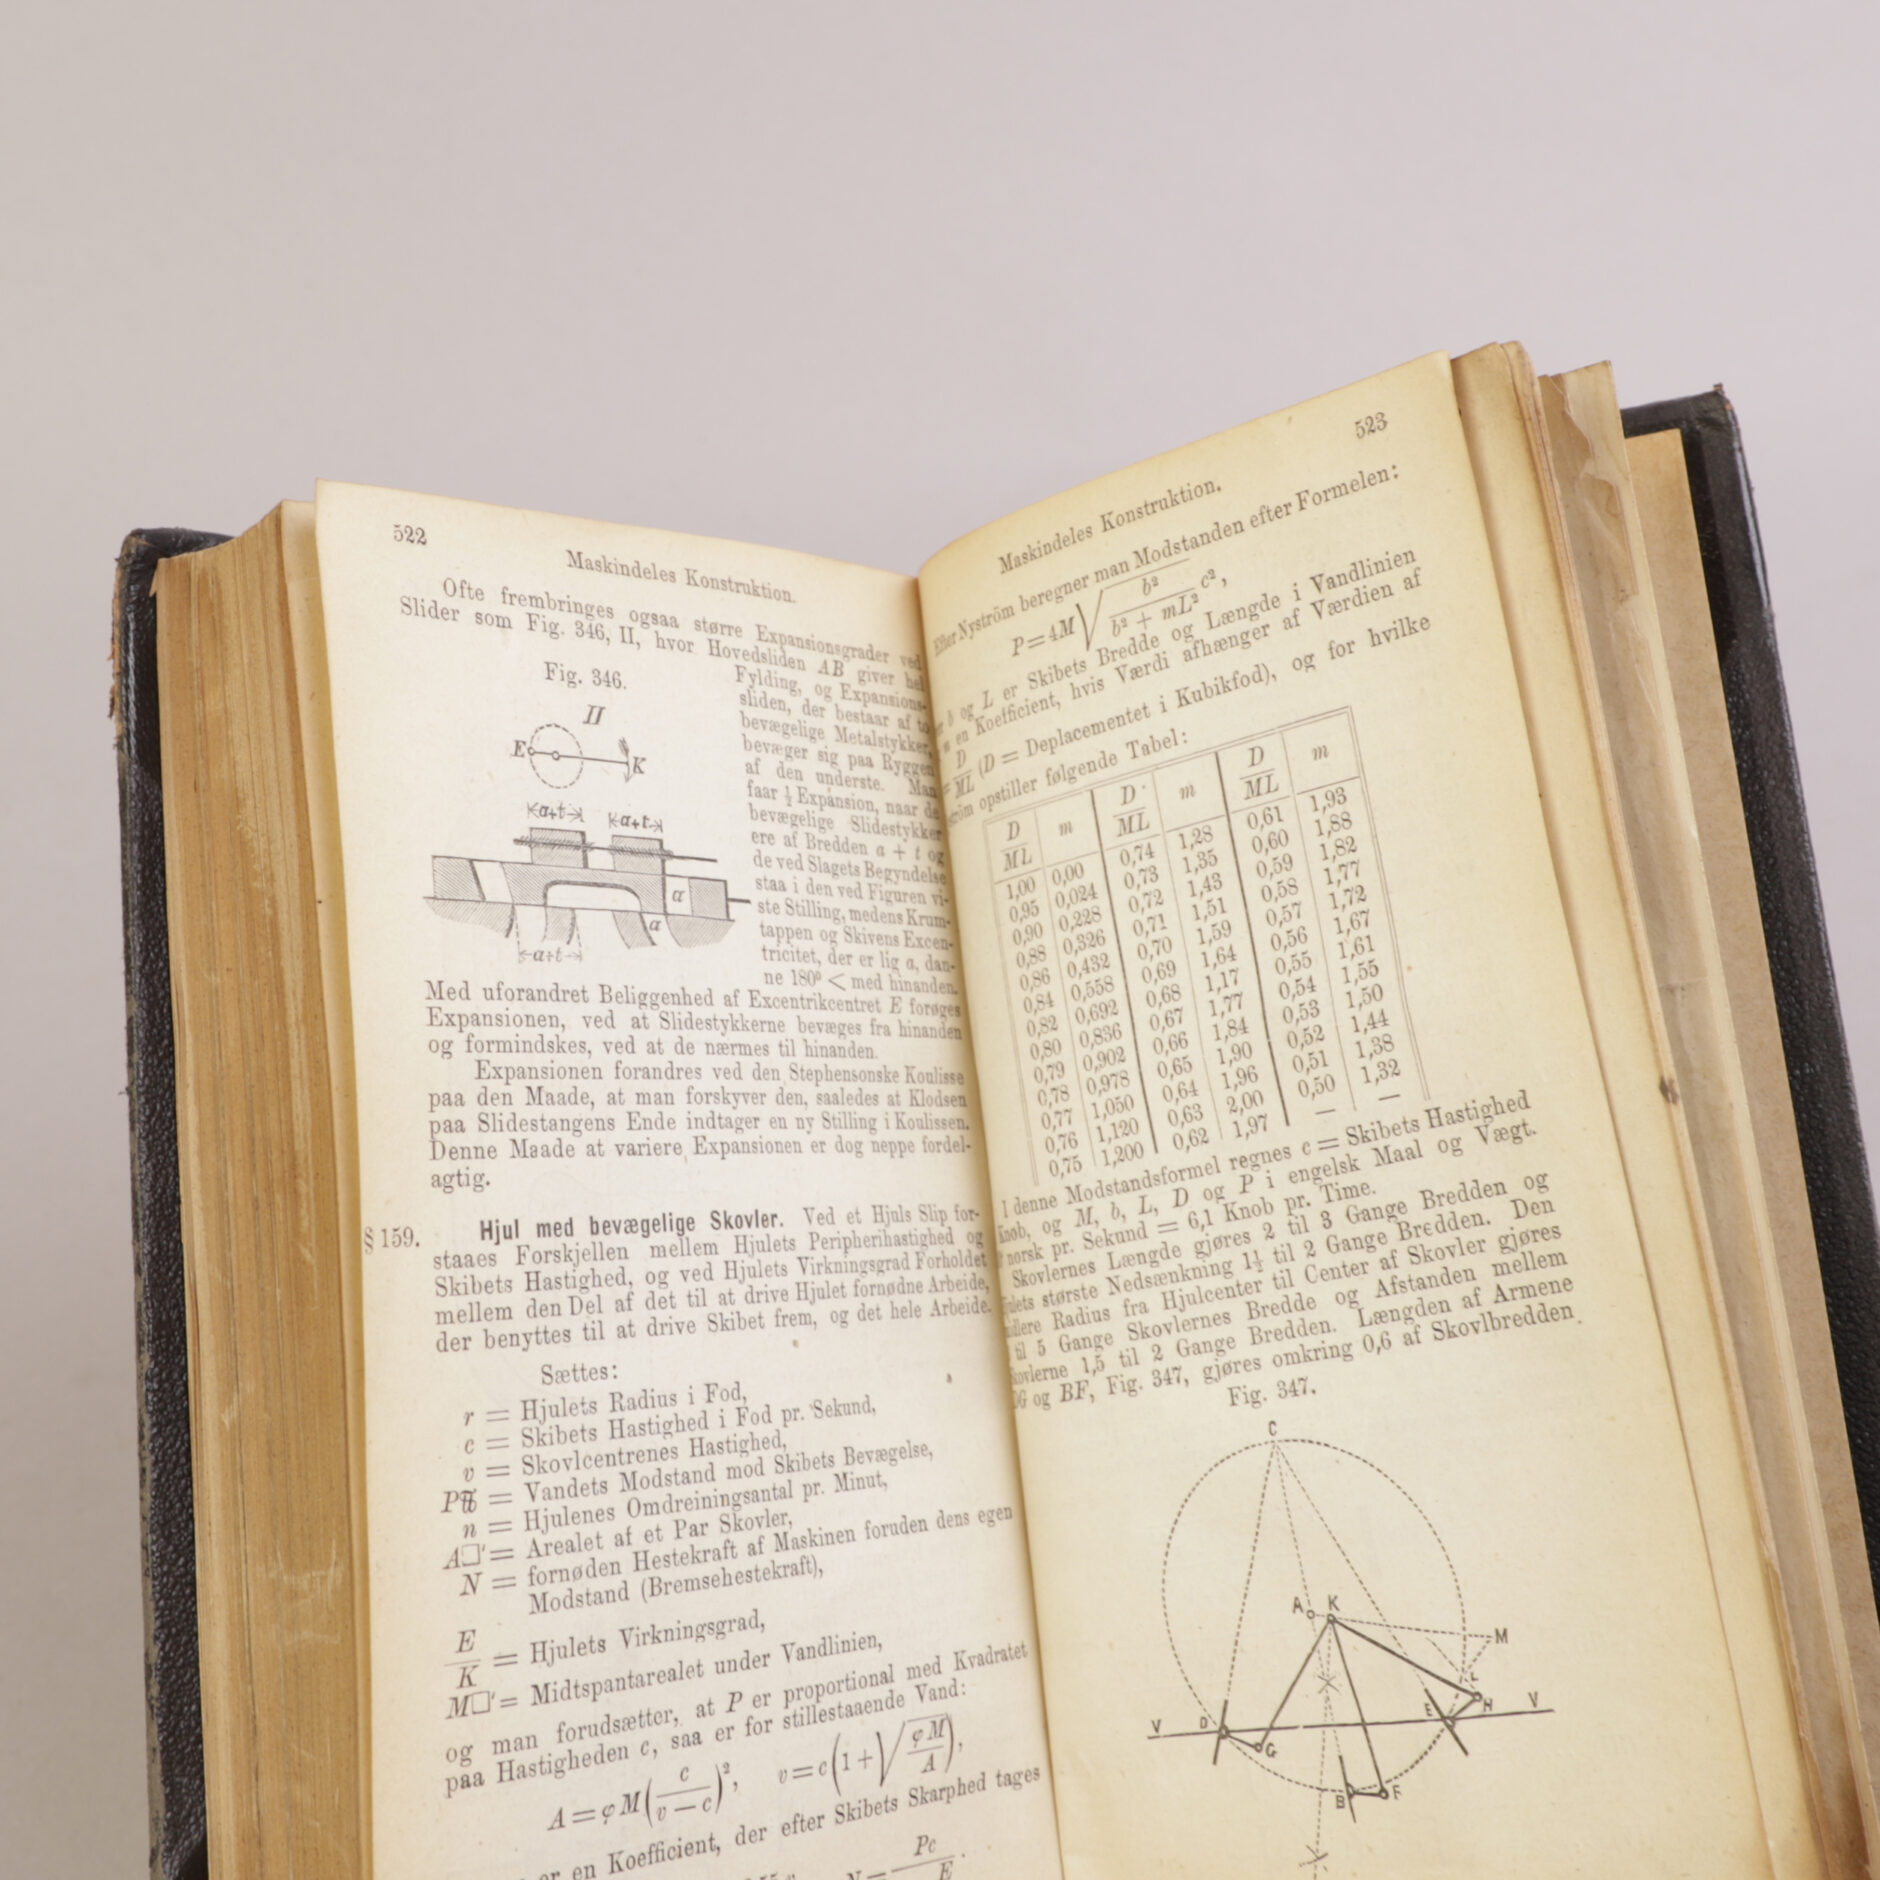 522
Maskindeles Konstruktion.
Ofte frembringes ogsaa større Expansionsgrader ved
Slider som Fig. 346, II, hvor Hovedsliden AB giver hel
Fig. 346.
II
E
K
a+t
a+t
a
a
a+t
Fylding, og Expansions-
sliden, der bestaar af to
bevægelige Metalstykker,
bevæger sig paa Ryggen
af den underste. Man
faar ½ Expansion, naar de
bevægelige Slidestykker
ere af Bredden a + t og
de ved Slagets Begyndelse
staa i den ved Figuren vi-
ste Stilling, medens Krum-
tappen og Skivens Excen-
tricitet, der er lig a, dan-
ne 180° < med hinanden.
Med uforandret Beliggenhed af Excentrikcentret E forøges
Expansionen, ved at Slidestykkerne bevæges fra hinanden
og formindskes, ved at de nærmes til hinanden.
Expansionen forandres ved den Stephensonske Koulisse
paa den Maade, at man forskyver den, saaledes at Klodsen
paa Slidestangens Ende indtager en ny Stilling i Koulissen.
Denne Maade at variere Expansionen er dog neppe fordel-
agtig.
§ 159. Hjul med bevægelige Skovler. Ved et Hjuls Slip for-
staaes Forskjellen mellem Hjulets Peripherihastighed og
Skibets Hastighed, og ved Hjulets Virkningsgrad Forholdet
mellem den Del af det til at drive Hjulet fornødne Arbeide,
der benyttes til at drive Skibet frem, og det hele Arbeide.
Sættes:
r = Hjulets Radius i Fod,
c = Skibets Hastighed i Fod pr. Sekund,
v = Skovlcentrenes Hastighed,
P℔ = Vandets Modstand mod Skibets Bevægelse,
n = Hjulenes Omdreiningsantal pr. Minut,
A□' = Arealet af et Par Skovler,
N = fornøden Hestekraft af Maskinen foruden dens egen
Modstand (Bremsehestekraft),
E/K = Hjulets Virkningsgrad,
M□' = Midtspantarealet under Vandlinien,
og man forudsætter, at P er proportional med Kvadratet
paa Hastigheden c, saa er for stillestaaende Vand:
A = φM(c/(v − c))², v = c(1 + √(φM/A)),
en Koefficient, der efter Skibets Skarphed tages
Pc
E
523
Maskindeles Konstruktion.
Efter Nyström beregner man Modstanden efter Formelen:
P = 4M√(b²/(b² + mL²)) c²,
b og L er Skibets Bredde og Længde i Vandlinien
en Koefficient, hvis Værdi afhænger af Værdien af
= D/ML (D = Deplacementet i Kubikfod), og for hvilke
opstiller følgende Tabel:
D/ML m D/ML m D/ML m
1,00 0,00 0,74 1,28 0,61 1,93
0,95 0,024 0,73 1,35 0,60 1,88
0,90 0,228 0,72 1,43 0,59 1,82
0,88 0,326 0,71 1,51 0,58 1,77
0,86 0,432 0,70 1,59 0,57 1,72
0,84 0,558 0,69 1,64 0,56 1,67
0,82 0,692 0,68 1,17 0,55 1,61
0,80 0,836 0,67 1,77 0,54 1,55
0,79 0,902 0,66 1,84 0,53 1,50
0,78 0,978 0,65 1,90 0,52 1,44
0,77 1,050 0,64 1,96 0,51 1,38
0,76 1,120 0,63 2,00 0,50 1,32
0,75 1,200 0,62 1,97 — —
I denne Modstandsformel regnes c = Skibets Hastighed
Knob, og M, b, L, D og P i engelsk Maal og Vægt.
norsk pr. Sekund = 6,1 Knob pr. Time.
Skovlernes Længde gjøres 2 til 3 Gange Bredden og
største Nedsænkning 1½ til 2 Gange Bredden. Den
Radius fra Hjulcenter til Center af Skovler gjøres
til 5 Gange Skovlernes Bredde og Afstanden mellem
1,5 til 2 Gange Bredden. Længden af Armene
og BF, Fig. 347, gjøres omkring 0,6 af Skovlbredden.
Fig. 347.
C
A
K
M
L
H
V
D
E
V
G
B
F